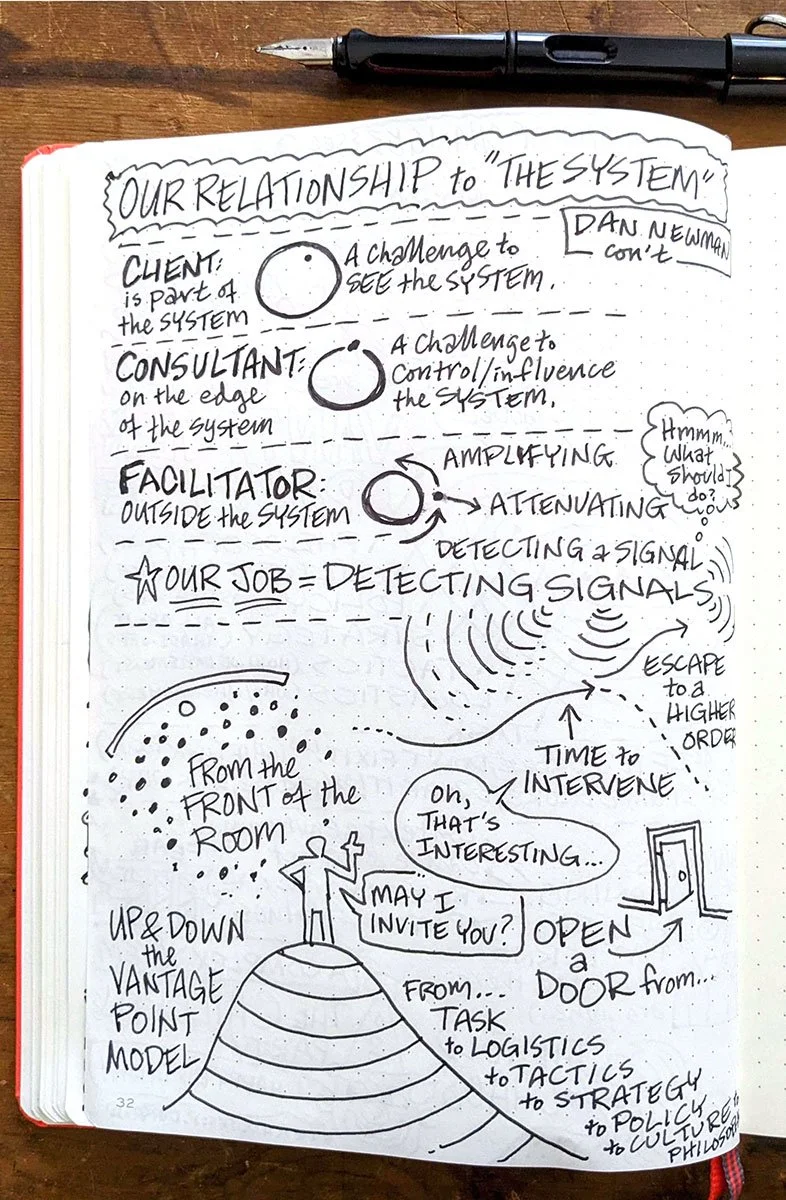 OUR RELATIONSHIP to "THE SYSTEM"
DAN NEWMAN
con't
CLIENT:
is part of
the SYSTEM
A challenge to
SEE the SYSTEM.
CONSULTANT:
on the edge
of the system
A challenge to
control/influence
the SYSTEM.
FACILITATOR:
OUTSIDE the SYSTEM
AMPLIFYING
ATTENUATING
DETECTING a SIGNAL
Hmmm...
What
Should I
do?
OUR JOB = DETECTING SIGNALS
ESCAPE
to a
HIGHER
ORDER
TIME to
INTERVENE
FROM the
FRONT of the
ROOM
Oh,
THAT'S
INTERESTING...
MAY I
INVITE YOU?
OPEN
a
DOOR from...
UP & DOWN
the
VANTAGE
POINT
MODEL
FROM...
TASK
to LOGISTICS
to TACTICS
to STRATEGY
to POLICY
to CULTURE to
PHILOSOPHY
32